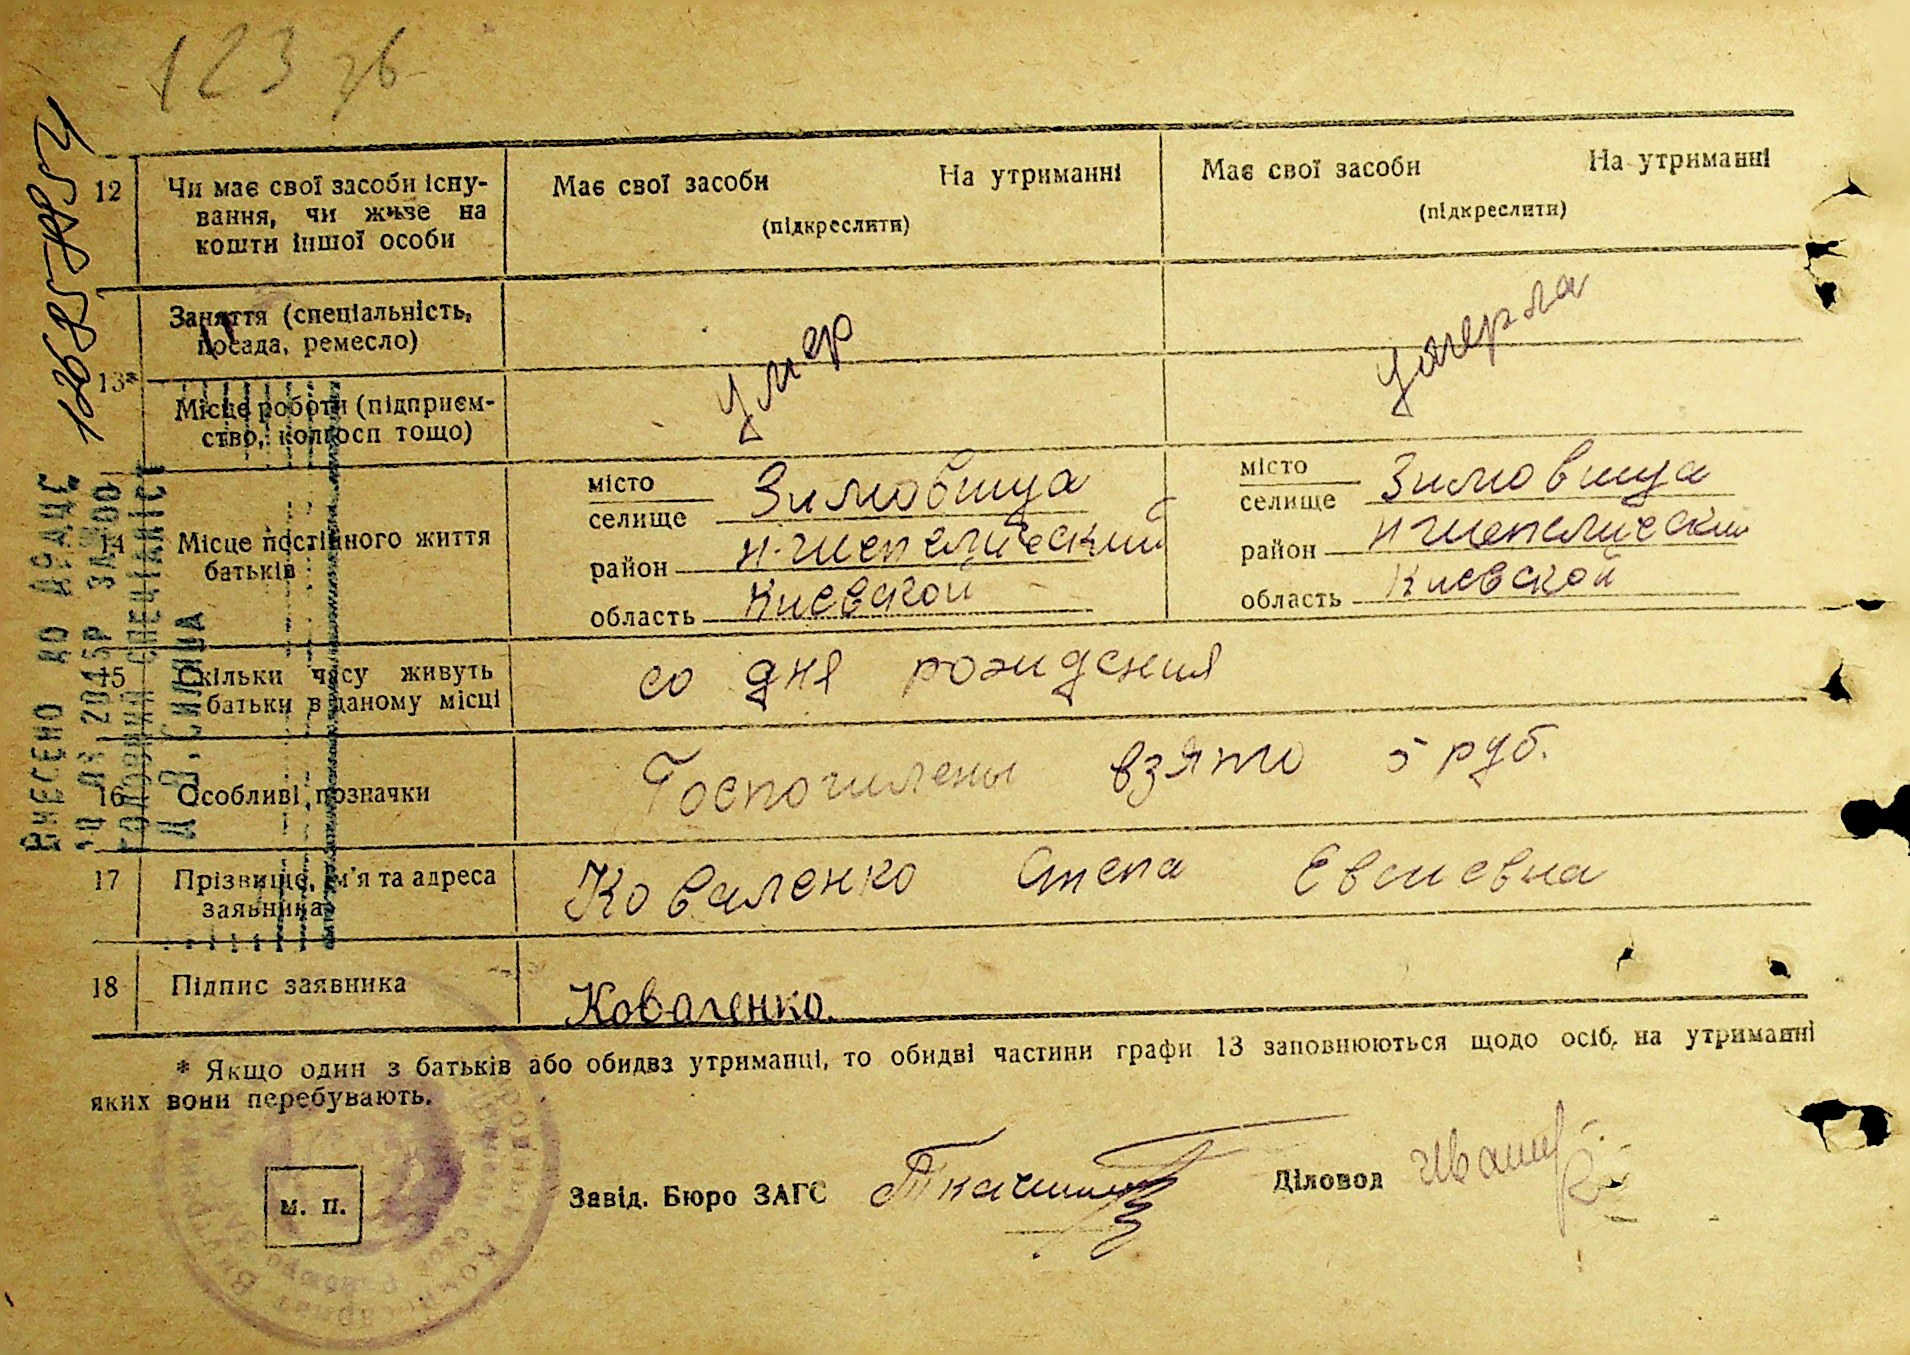 123 зв
12
Чи має свої засоби існу-
вання, чи живе на
кошти іншої особи
Має свої засоби На утриманні
(підкреслити)
Має свої засоби На утриманні
(підкреслити)
13*
Заняття (спеціальність,
посада, ремесло)
Місце роботи (підприєм-
ство, колгосп тощо)
умер
умерла
14
Місце постійного життя
батьків
місто
селище Зимовища
район Н-Шепелический
область Киевской
місто
селище Зимовища
район Н Шепелический
область Киевской
15
Скільки часу живуть
батьки в даному місці
со дня рождения
16
Особливі позначки
Госпошлены взято 5 руб.
17
Прізвище, ім'я та адреса
заявника
Коваленко Степа Евсиевна
18
Підпис заявника
Коваленко
* Якщо один з батьків або обидва утриманці, то обидві частини графи 13 заповнюються щодо осіб, на утриманні
яких вони перебувають.
м. п.
Завід. Бюро ЗАГС
Діловод
ВНЕСЕНО ДО ДРАЦС
ГОЛОВНИЙ СПЕЦІАЛІСТ